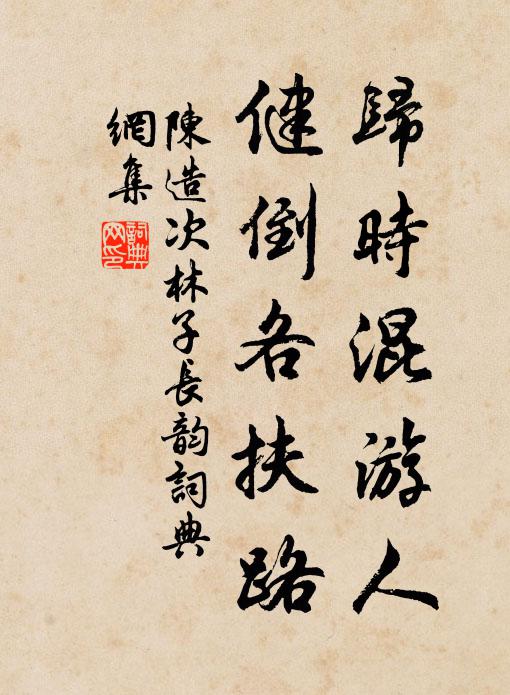 歸時混游人
健倒各扶路
陳造次林子長韵詞典
網集
詞典
网印